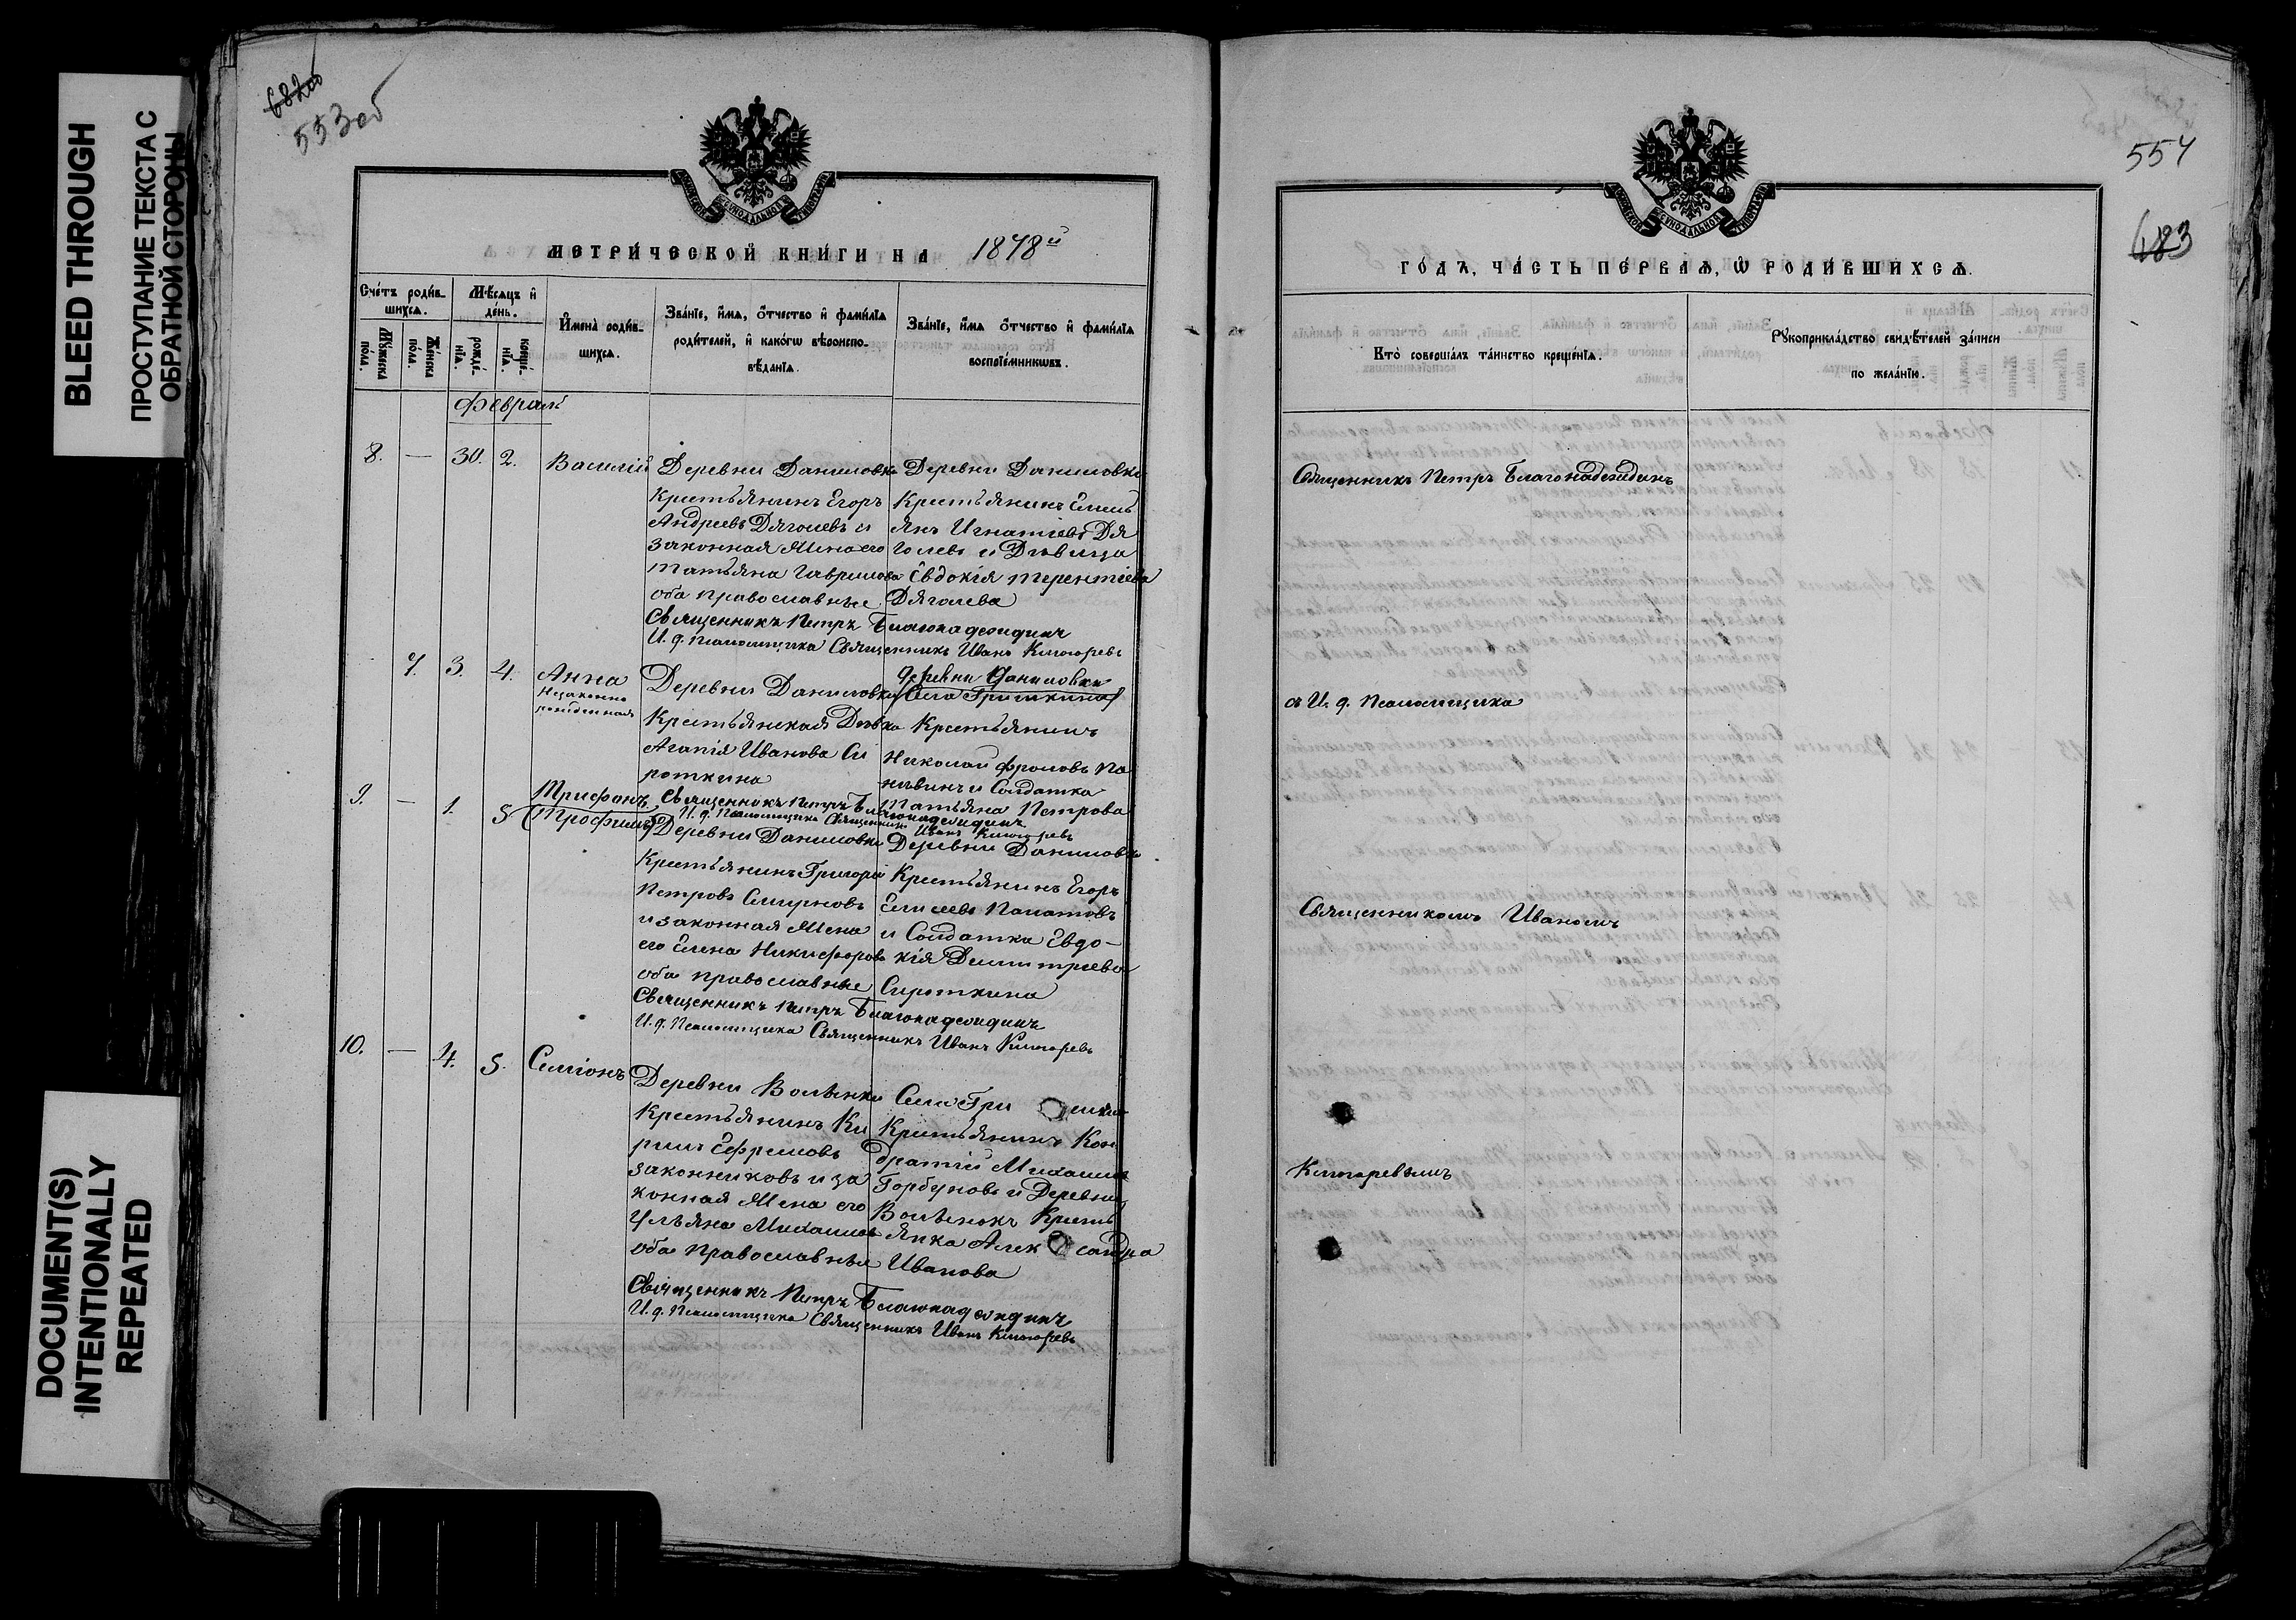 BLEED THROUGH
ПРОСТУПАНИЕ ТЕКСТА С
ОБРАТНОЙ СТОРОНЫ
DOCUMENT(S)
INTENTIONALLY
REPEATED
682об
553об
МЕТРИ́ЧЕСКОЙ КНИ́ГИ НА 1878й
Сче́тъ роди́в-
шихсѧ.
Мѣсѧцъ и
де́нь.
Мꙋ́жеска по́ла.
Же́нска по́ла.
рожде́-
нїѧ.
креще́-
нїѧ.
И҆мена̀ роди́в-
шихсѧ.
Зва́нїе, и҆́мѧ, ѻ҆́тчество и҆ фамѝлїѧ
роди́телей, и҆ како́гѡ вѣроиспо-
вѣ́данїѧ.
Зва́нїе, и҆́мѧ ѻ҆́тчество и҆ фамѝлїѧ
воспрїе́мникѡвъ.
Февраль
8. — 30. 2. Василій
Деревни Даниловки
Крестьянинъ Егоръ
Андреевъ Дяголевъ и
законная жена его
Татьяна Гаврилова
оба православные
Деревни Даниловки
Крестьянинъ Емель
янъ Игнатіевъ Дя
голевъ и Дѣвица
Евдокія Терентіева
Дяголева
Священникъ Петръ Благонадеждинъ
И. д. Псаломщика Священникъ Иванъ
7. 3. 4. Анна
Незаконно
рожденная
Деревни Даниловки
Крестьянская Дѣвка
Агапія Иванова Си
роткина
деревни Даниловки
Села Гришкина
Крестьянинъ
Николай Фроловъ
и Солдатка
Татьяна Петрова
Священникъ Петръ Благонадеждинъ
И. д. Псаломщика Священникъ
Иванъ
9. — 1. 5 Трифонъ
Трофимъ
Деревни Даниловки
Крестьянинъ Григорій
Петровъ Смирновъ
и законная жена
его Елена Никифорова
оба православные
Деревни Даниловки
Крестьянинъ Егоръ
Елисеевъ
и Солдатка Евдо-
кія Димитріева
Сироткина
Священникъ Петръ Благонадеждинъ
И. д. Псаломщика Священникъ Иванъ
10. — 4. 5. Симіонъ
Деревни
Крестьянинъ Ки
рилъ Ефремовъ
законниковъ и за
конная жена его
Ульяна Михаилова
оба православные
Села Гри шкина
Крестьянинъ Кон
дратій Михаиловъ
Горбуновъ и Деревни
Кресть
янка Алек сандра
Иванова
Священникъ Петръ Благонадеждинъ
И. д. Псаломщика Священникъ Иванъ
554
683
ГО́ДЪ, ЧА́СТЬ ПЕ́РВАѦ, Ѡ҆ РОДИ́ВШИХСѦ.
Кто̀ соверша́лъ та́инство креще́нїѧ.
Рꙋкоприкла́дство свидѣ́телей за́писи
по жела́нїю.
Священникъ Петръ Благонадеждинъ
съ И. д. Псаломщика
Священникомъ Иваномъ